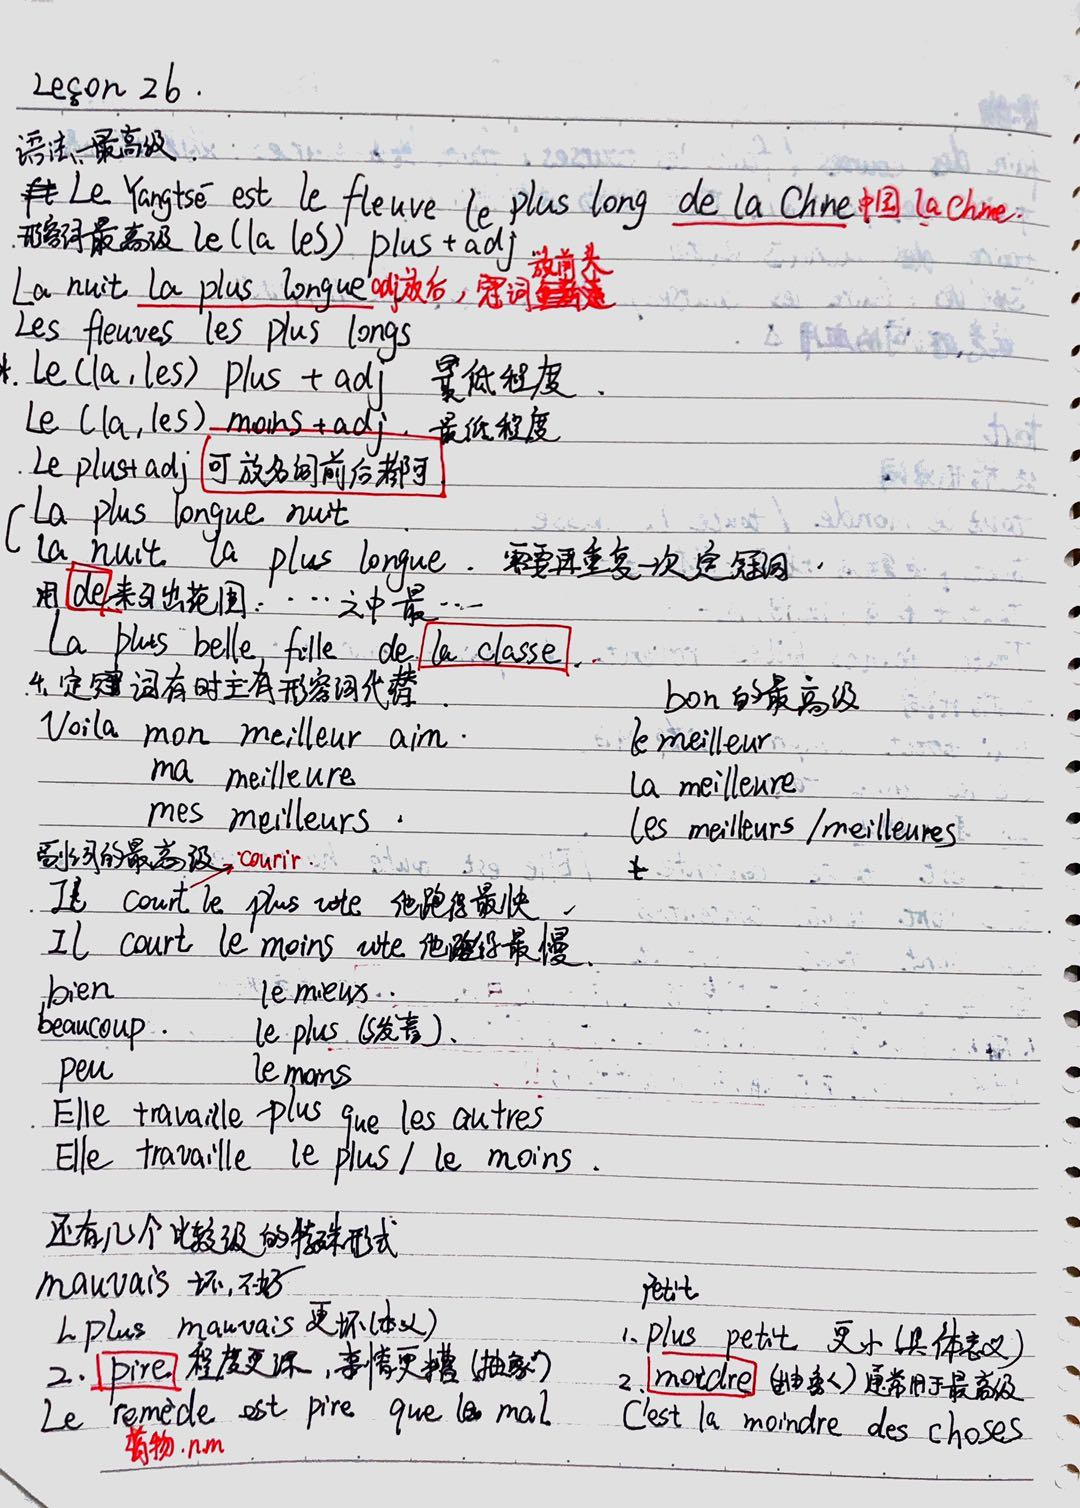 Leçon 26.
语法、最高级.
Le Yangtsé est le fleuve le plus long de la Chine 中国 la Chine.
形容词最高级 le (la les) plus + adj
La nuit la plus longue adj放后，冠词放前头
Les fleuves les plus longs
*. Le (la, les) plus + adj 最低程度.
Le (la, les) moins + adj. 最低程度
. Le plus + adj 可放名词前后都可
La plus longue nuit
La nuit la plus longue. 需要再重复一次定冠词.
用 de 来引出范围. ……之中最……
La plus belle fille de la classe.
4. 定冠词有时主有形容词代替.
bon 的最高级
Voila mon meilleur aim.
ma meilleure
mes meilleurs.
le meilleur
La meilleure
Les meilleurs / meilleures
副词的最高级 courir.
Il court le plus vite 他跑得最快
Il court le moins vite 他跑得最慢.
bien le mieux.
beaucoup. le plus (s发音).
peu le moins
Elle travaille plus que les autres
Elle travaille le plus / le moins.
还有几个比较级的特殊形式
mauvais 坏, 不好
1. plus mauvais 更坏 (本义)
2. pire 程度更深, 事情更糟 (抽象)
Le remède est pire que le mal
药物. n.m
petit
1. plus petit 更小 (具体意义)
2. moidre (抽象) 通常用于最高级
C'est la moindre des choses